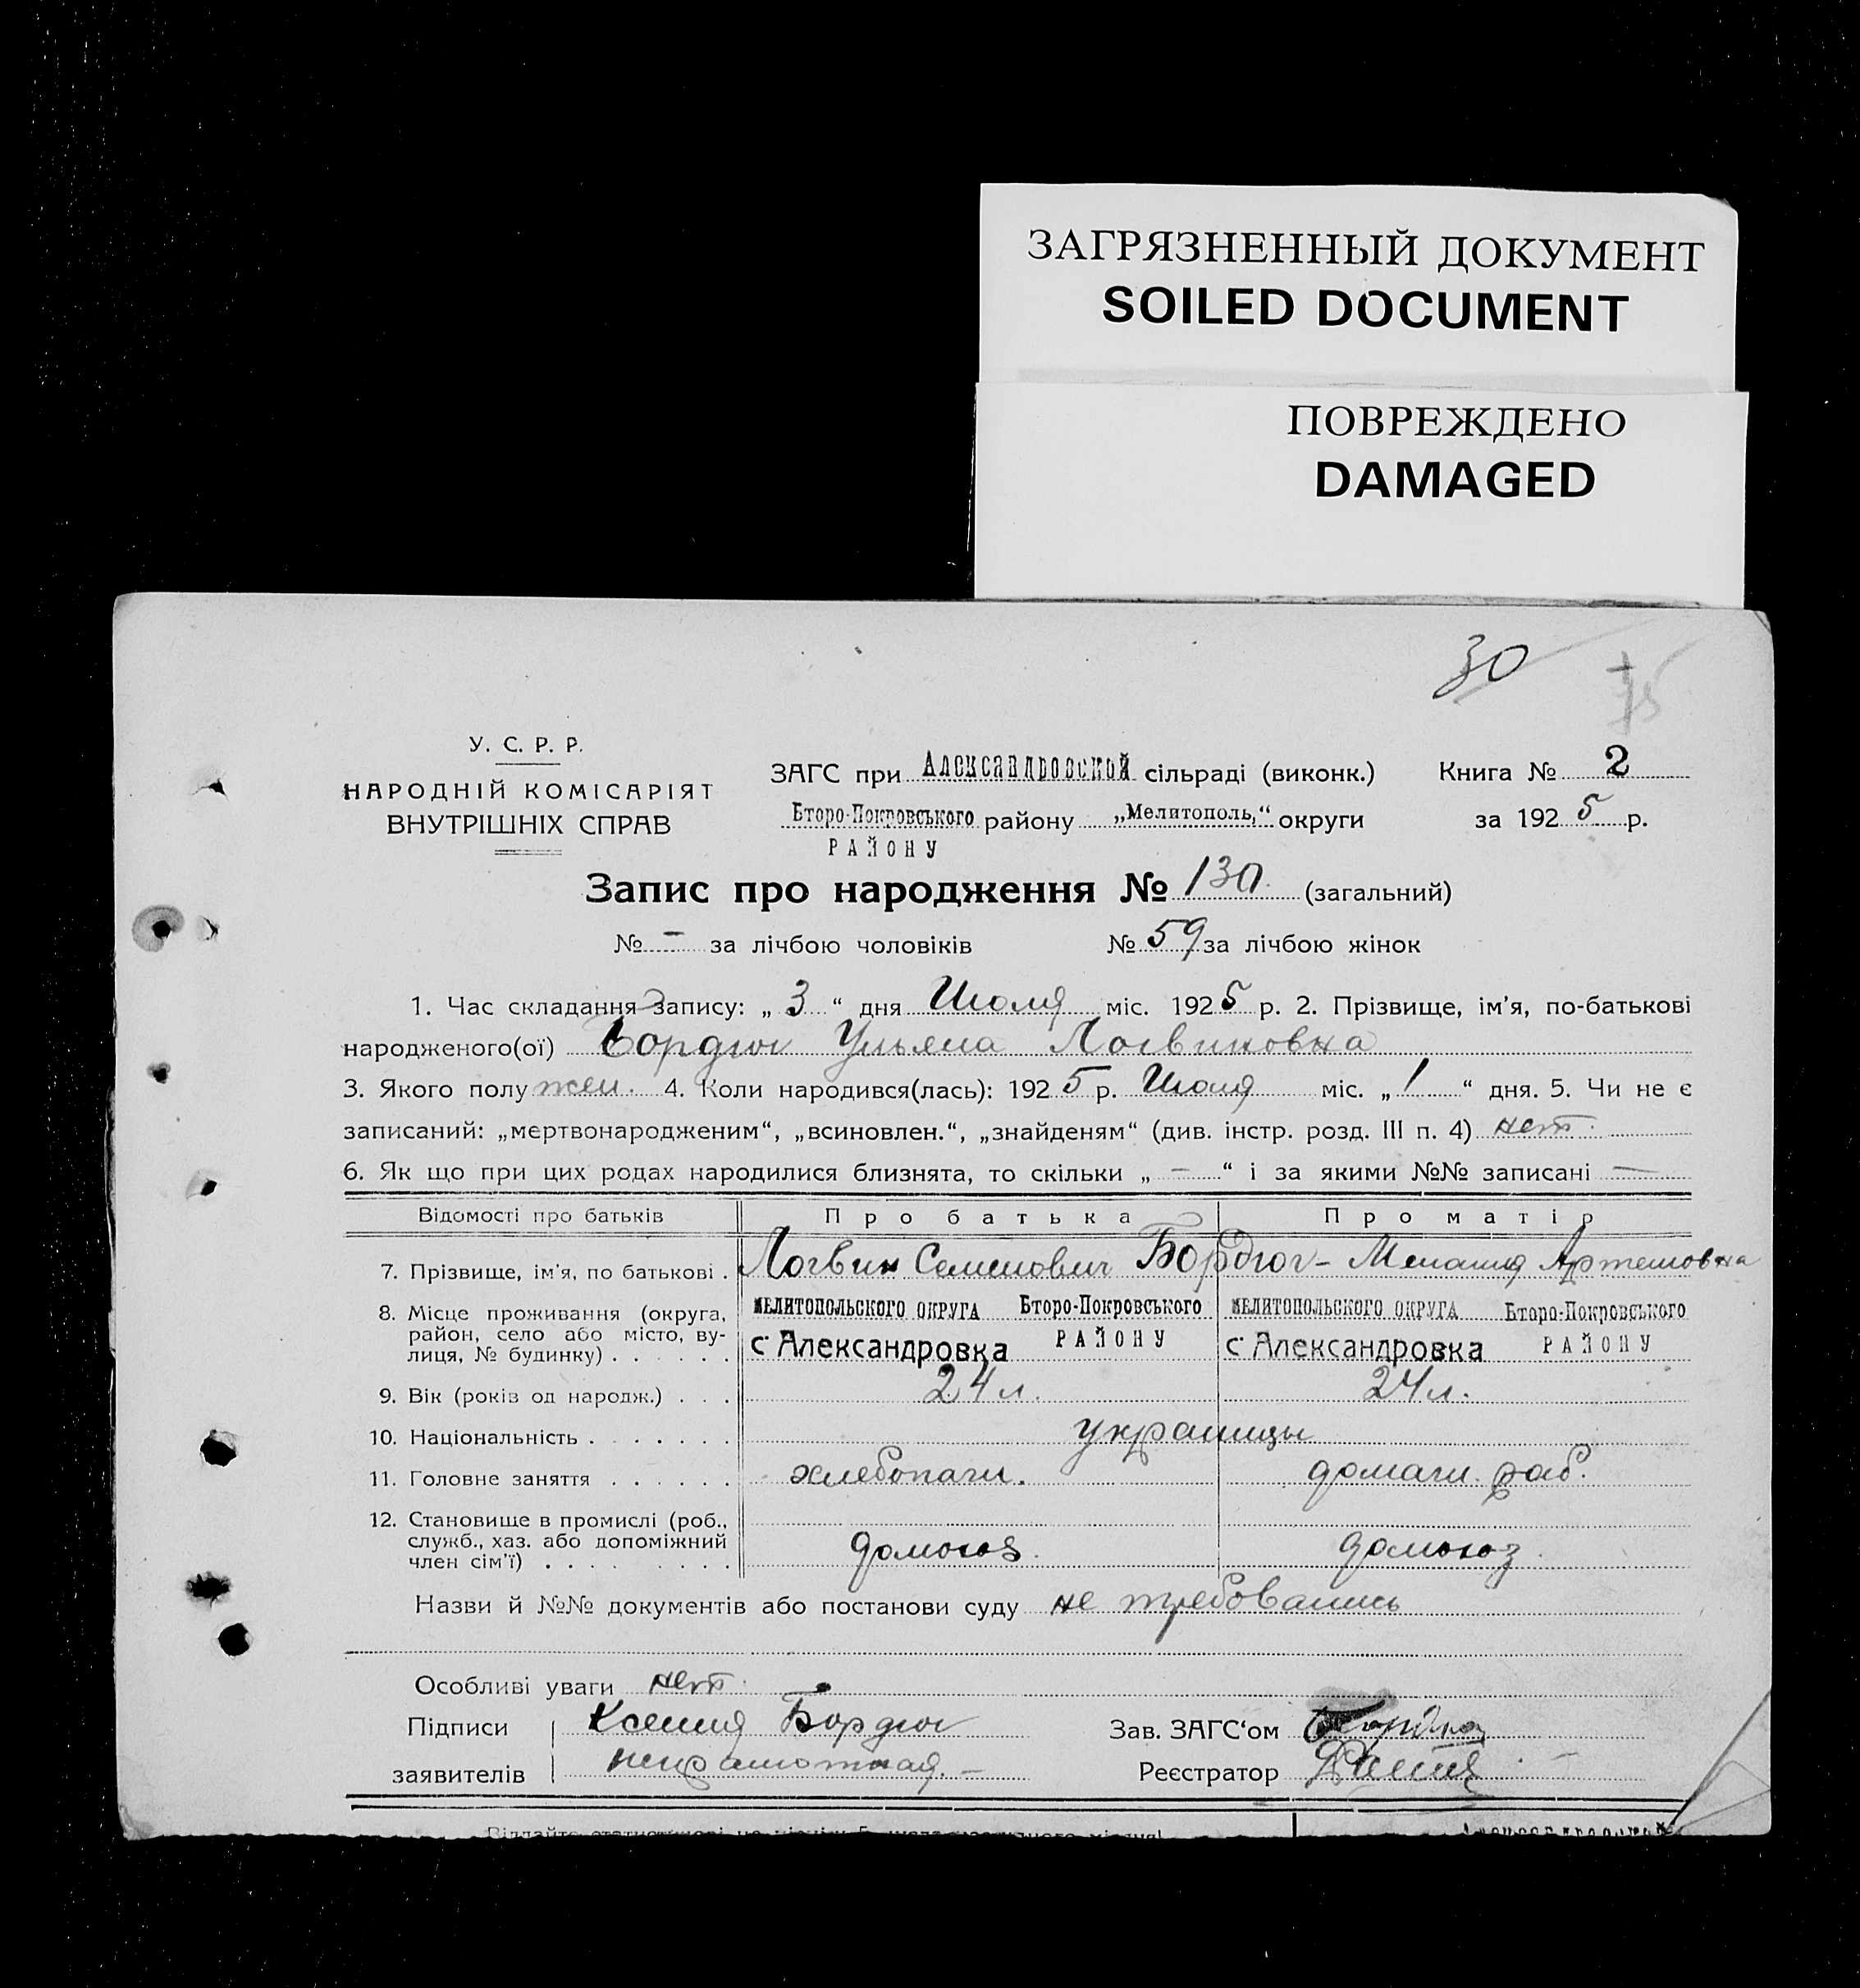 ЗАГРЯЗНЕННЫЙ ДОКУМЕНТ
SOILED DOCUMENT
ПОВРЕЖДЕНО
DAMAGED
30
У. С. Р. Р.
НАРОДНІЙ КОМІСАРІЯТ
ВНУТРІШНІХ СПРАВ
ЗАГС при Александровской сільраді (виконк.) Книга № 2
Второ-Покровського району „Мелитополь,“ округи за 1925 р.
РАЙОНУ
Запис про народження № 130 (загальний)
№ - за лічбою чоловіків № 59 за лічбою жінок
1. Час складання запису: „ 3 “ дня Июля міс. 1925 р. 2. Прізвище, ім'я, по-батькові
народженого(ої) Бордюг Ульяна Логвиновна
3. Якого полу жен. 4. Коли народився(лась): 1925 р. Июля міс. „ 1 “ дня. 5. Чи не є
записаний: „мертвонародженим“, „всиновлен.“, „знайденям“ (див. інстр. розд. III п. 4) нет.
6. Як що при цих родах народилися близнята, то скільки „ - “ і за якими №№ записані —
Відомості про батьків Про батька Про матір
7. Прізвище, ім'я, по батькові . Логвин Семенович Бордюг - Мелания Артемовна
8. Місце проживання (округа, район, село або місто, вулиця, № будинку) . . . . . .
МЕЛИТОПОЛЬСКОГО ОКРУГА Второ-Покровського МЕЛИТОПОЛЬСКОГО ОКРУГА Второ-Покровського
с Александровка РАЙОНУ с Александровка РАЙОНУ
9. Вік (років од народж.) . . . 24 л. 24 л.
10. Національність . . . . . . . украинцы
11. Головне заняття . . . . . . хлебопаш. домаш. раб.
12. Становище в промислі (роб.,
служб., хаз. або допоміжний
член сім'ї) . . . . . . . . . домохоз. домохоз.
Назви й №№ документів або постанови суду не требовались
Особливі уваги нет.
Підписи Ксения Бордюг Зав. ЗАГС'ом
заявителів неграмотная. — Реєстратор